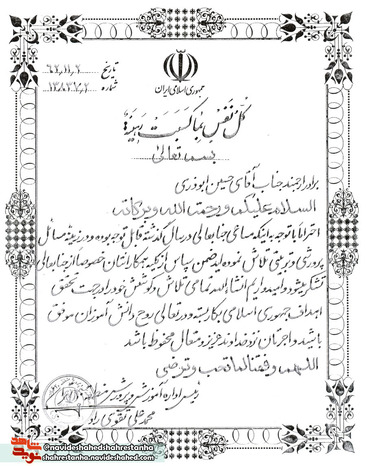 جمهوری اسلامی ایران
تاریخ ۶۷٫۱۱٫۲
شماره ۱۲۸۰۲۷٫۲
كُلُّ نَفْسٍ بِمَا كَسَبَتْ رَهِينَةٌ
بسمه تعالی
برادر ارجمند جناب آقای حسین ابوذری
السلام علیکم و رحمت الله و برکاته
احتراماً با توجه به اینکه مساعی جنابعالی در سال گذشته قابل توجه بوده و در زمینه مسائل
پرورشی و تربیتی تلاش نموده اید ضمن سپاس از کلیه همکارانتان خصوصاً از جنابعالی
تشکر میشود و امیدواریم انشاءالله نهایت تلاش و کوشش خود را در جهت تحقق
اهداف جمهوری اسلامی بکار بسته و در تعالی روح دانش آموزان موفق
باشید و اجرتان نزد خداوند عزیز و متعال محفوظ باشد
اللهم وفقنا لما تحب و ترضی
رئیس اداره آموزش و پرورش
محمد علی تقوی راد
@navideshahedshahrestanha
shahrestanha.navideshahed.com